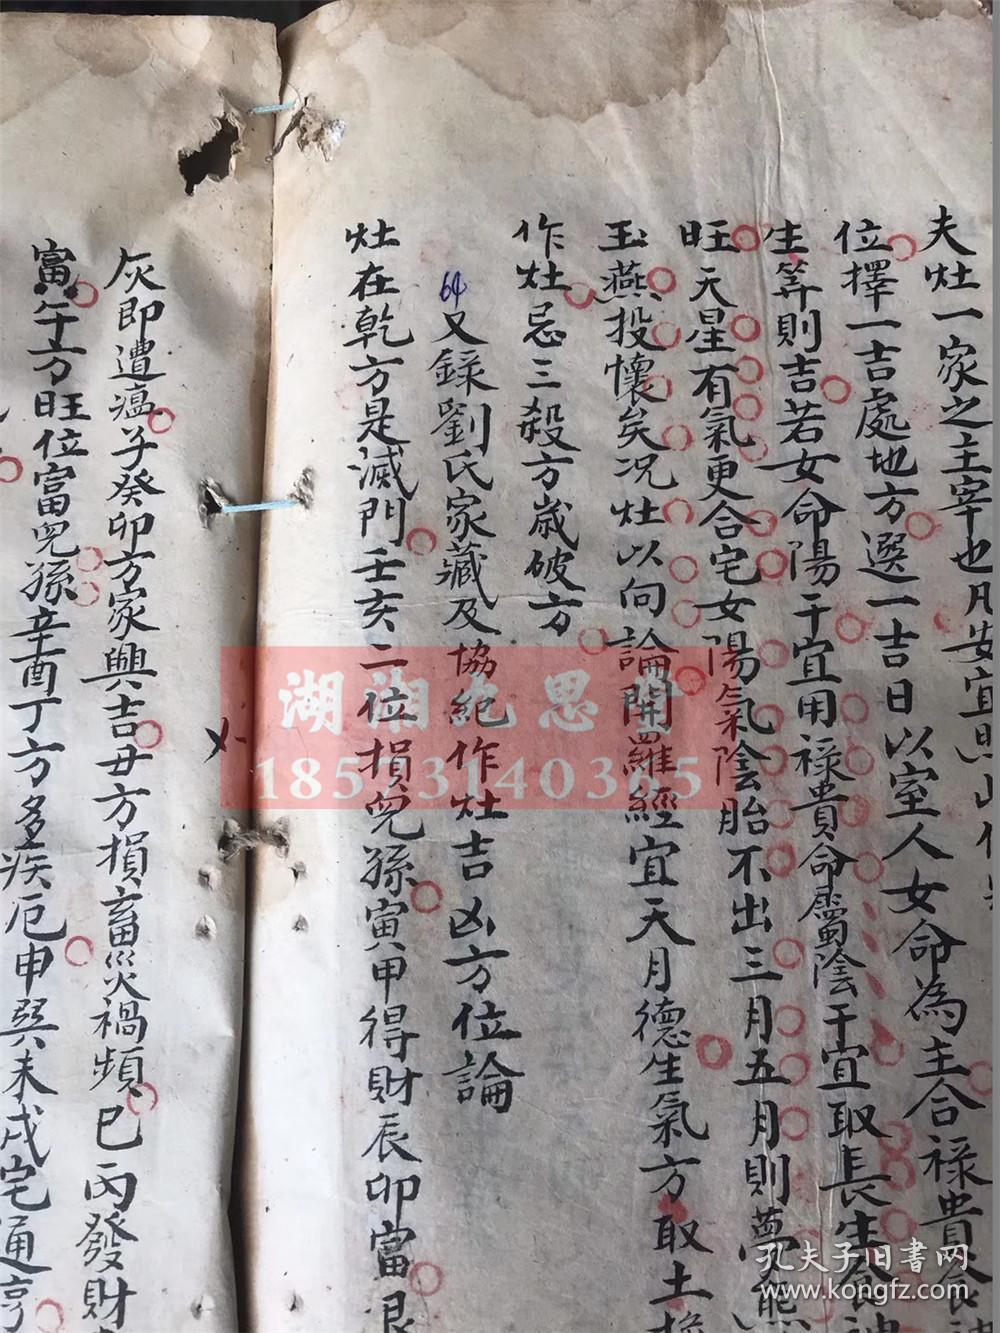 夫灶一家之主宰也凡安宜
位擇一吉處地方選一吉日以室人女命為主合祿貴食
生等則吉若女命陽干宜用祿貴命屬陰干宜取長生食神
旺天星有氣更合宅女陽氣陰胎不出三月五月則夢熊
玉燕投懷矣况灶以向論開羅經宜天月德生氣方取土
作灶忌三殺方歲破方
64
又錄劉氏家藏及協紀作灶吉凶方位論
灶在乾方是滅門壬亥二位損兒孫寅甲得財辰卯富艮
灰即遭瘟子癸卯方家興吉丑方損畜災禍頻巳丙發財
富午方旺位富兒孫辛酉丁方多疾厄申巽未戌宅通亨
湖湘
18573140365
孔夫子旧書网
www.kongfz.com